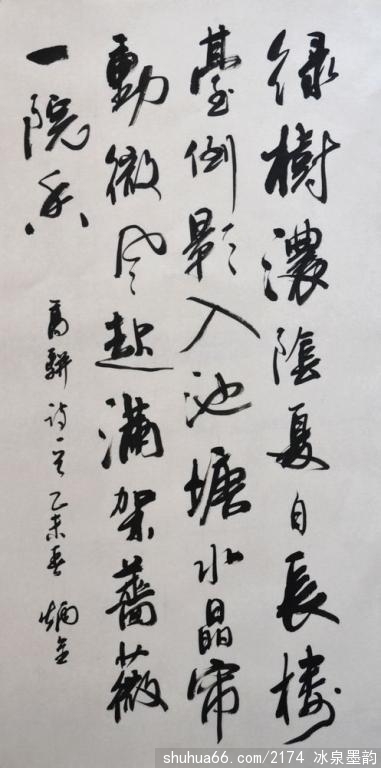 绿樹濃陰夏日長樓
臺倒影入池塘水晶帘
動微风起满架蔷薇
一院香
高駢诗一首乙未春炳金
shuhua66.com/2174 冰泉墨韵